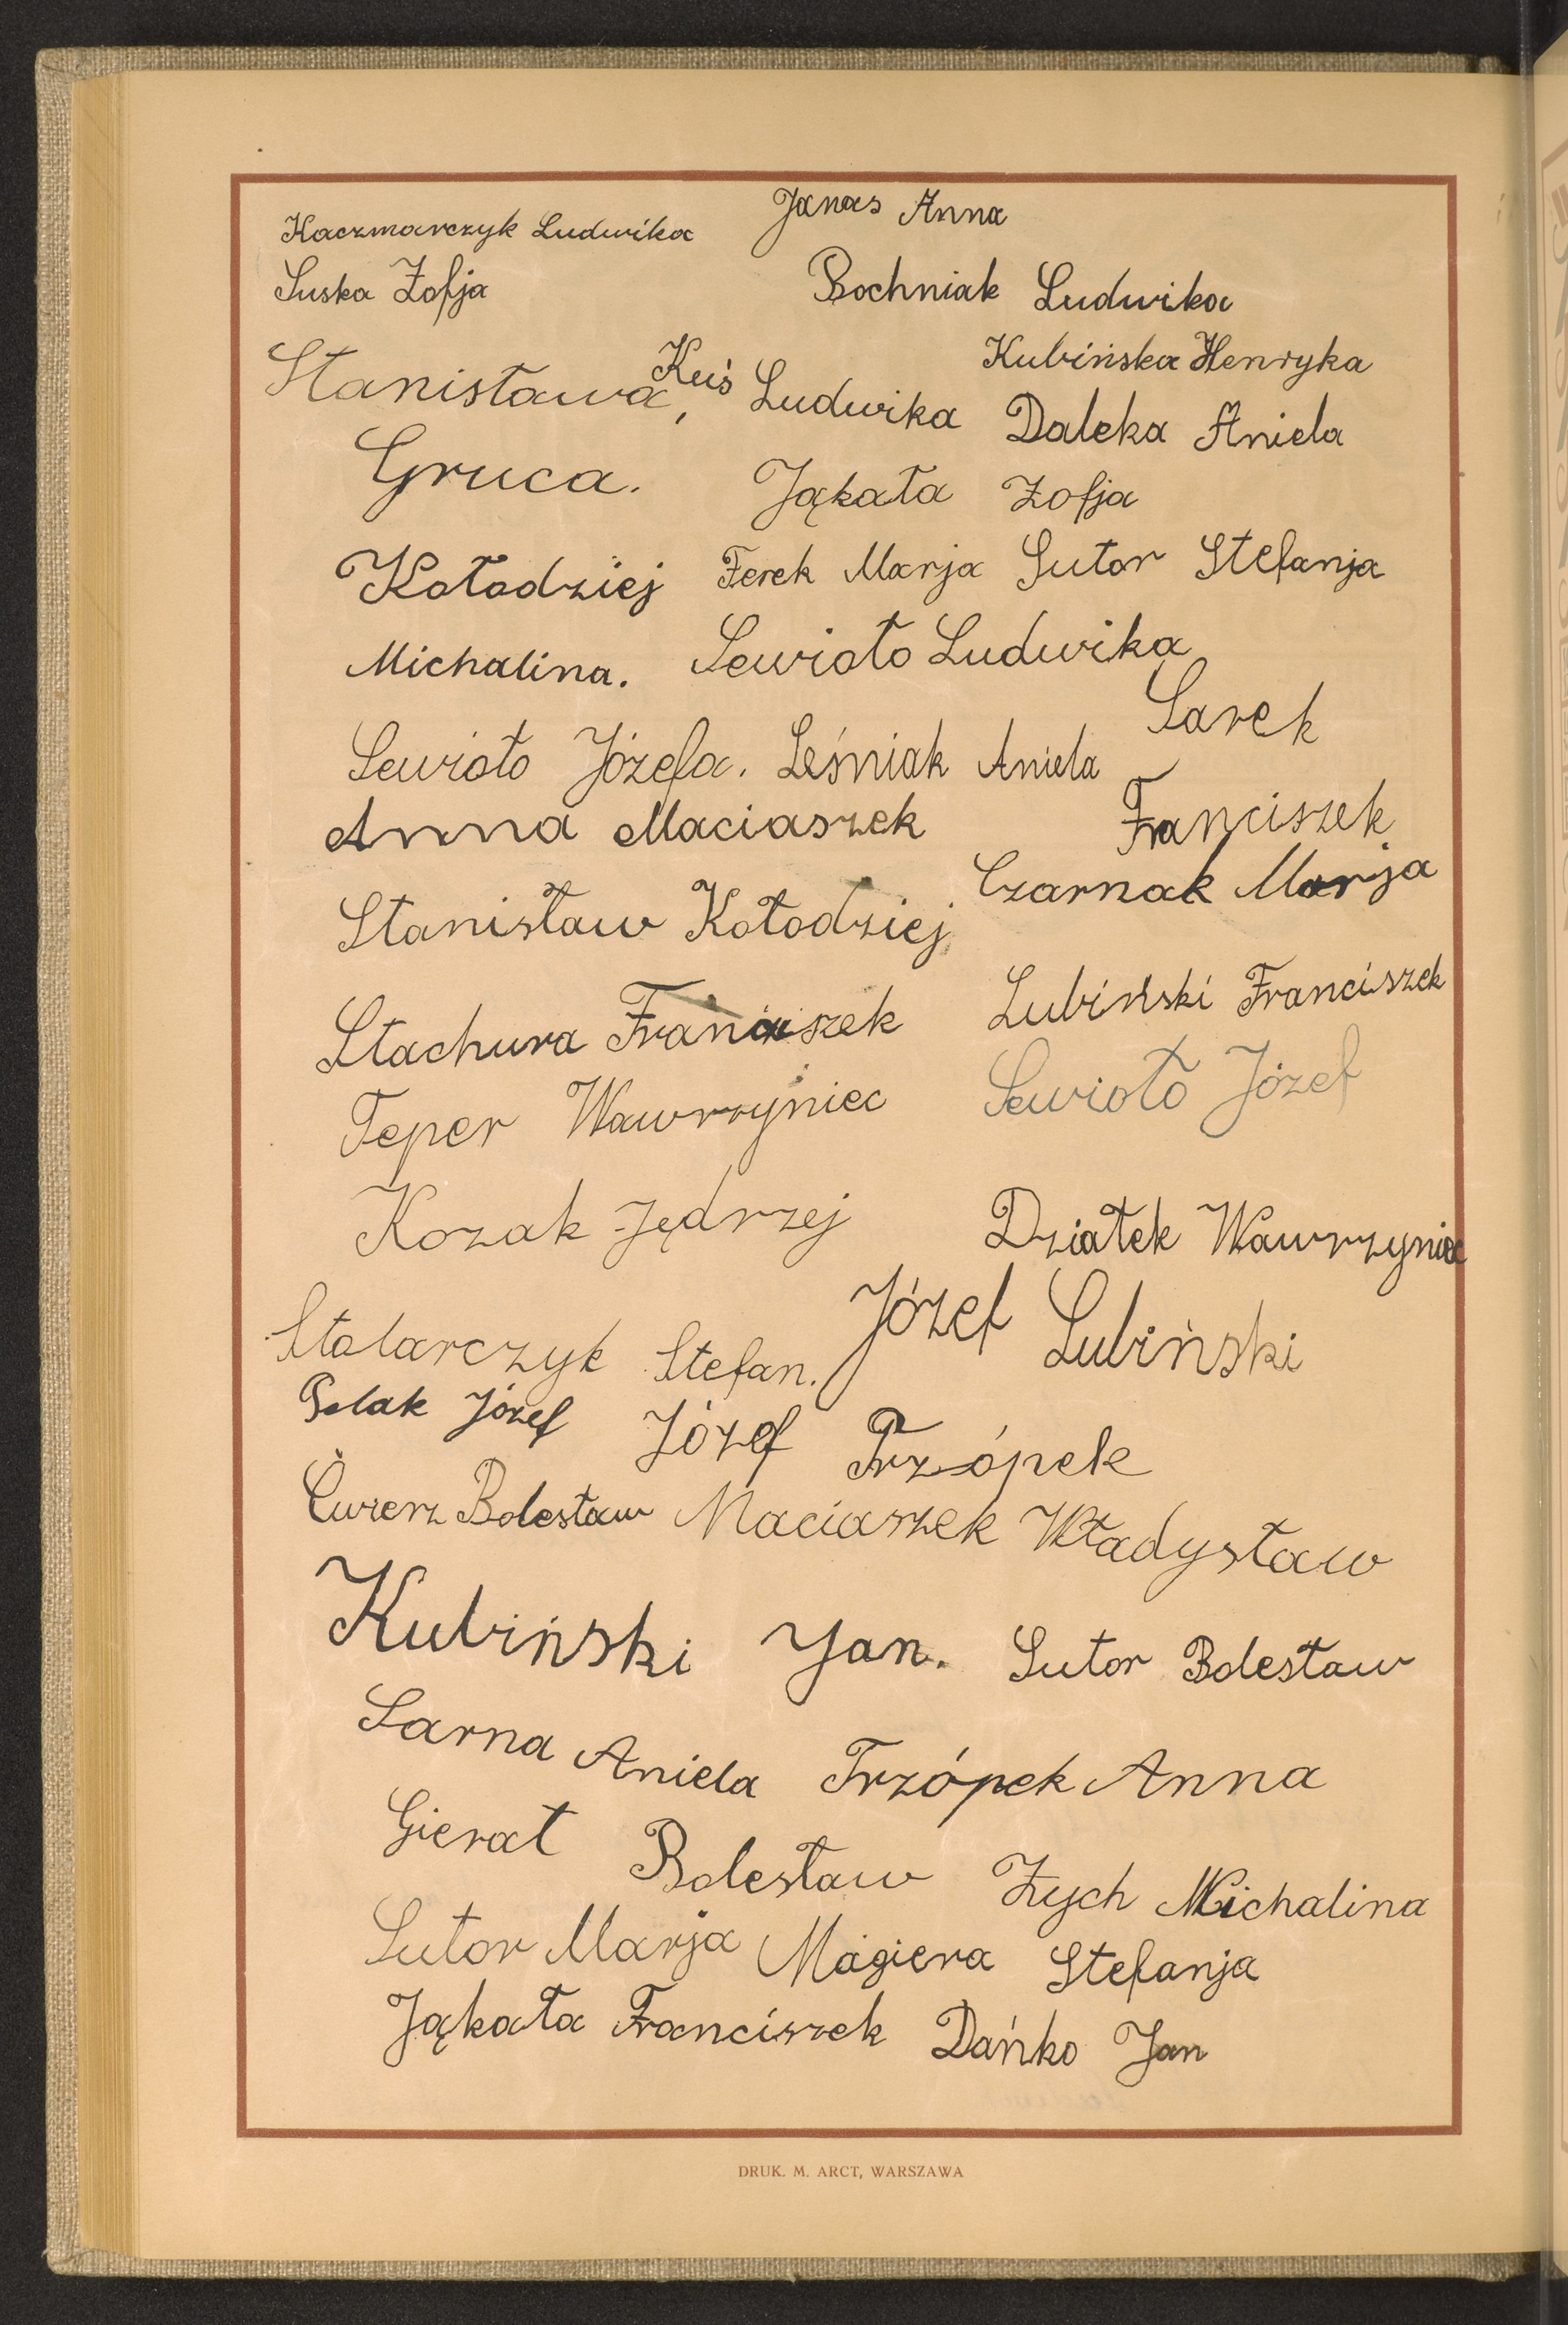 Kaczmarczyk Ludwika
Janas Anna
Suska Zofja
Bochniak Ludwika
Kubińska Henryka
Stanisława,
Kuś Ludwika
Daleka Aniela
Gruca.
Jąkała Zofja
Kołodziej
Ferek Marja
Sutor Stefanja
Michalina.
Sewioło Ludwika
Sarek
Sewioło Józefa.
Leśniak Aniela
Franciszek
Anna Maciaszek
Czarnak Marja
Stanisław Kołodziej
Stachura Franciszek
Lubiński Franciszek
Teper Wawrzyniec
Sewioło Józef
Kozak Jędrzej
Działek Wawrzyniec
Stolarczyk Stefan.
Józef Lubiński
Polak Józef
Józef Trzópek
Bolesław
Maciaszek Władysław
Kubiński Jan.
Sutor Bolesław
Sarna Aniela
Trzópek Anna
Gierat Bolesław
Zych Michalina
Sutor Marja
Magiera Stefanja
Jąkała Franciszek
Dańko Jan
DRUK. M. ARCT, WARSZAWA